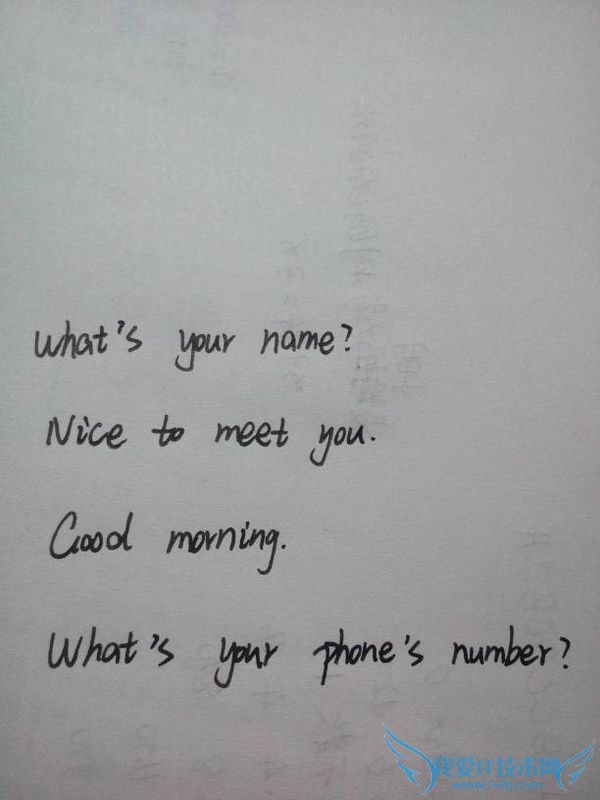 What's your name?
Nice to meet you.
Good morning.
What's your phone's number?
我爱IT技术网